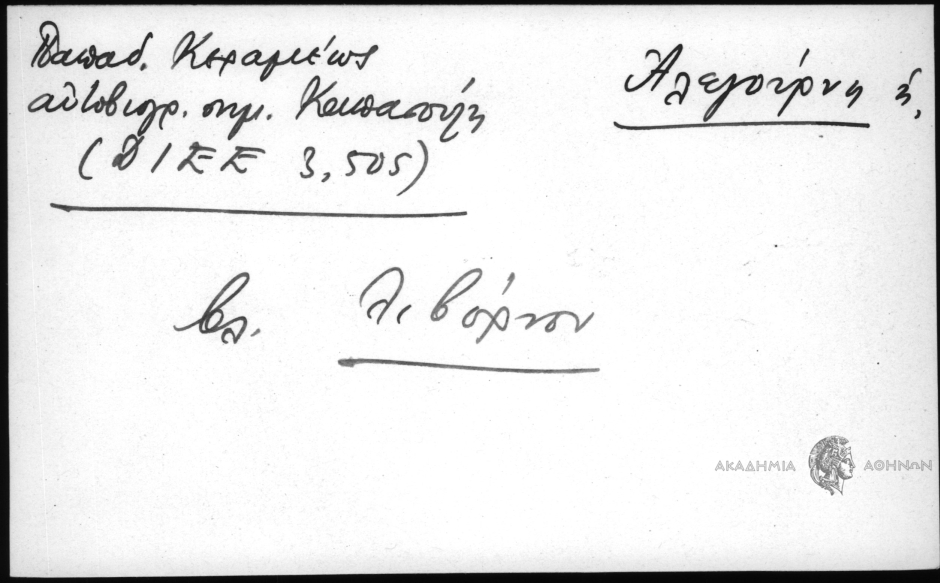 Παπαδ. Κεραμέως
αὐτοβιογρ. σημ. Κομπασούλη
(ΔΙΕΕ 3,505)
Ἀλεγούρνη ἡ,
βλ. Λιβόρνον
ΑΚΑΔΗΜΙΑ ΑΘΗΝΩΝ